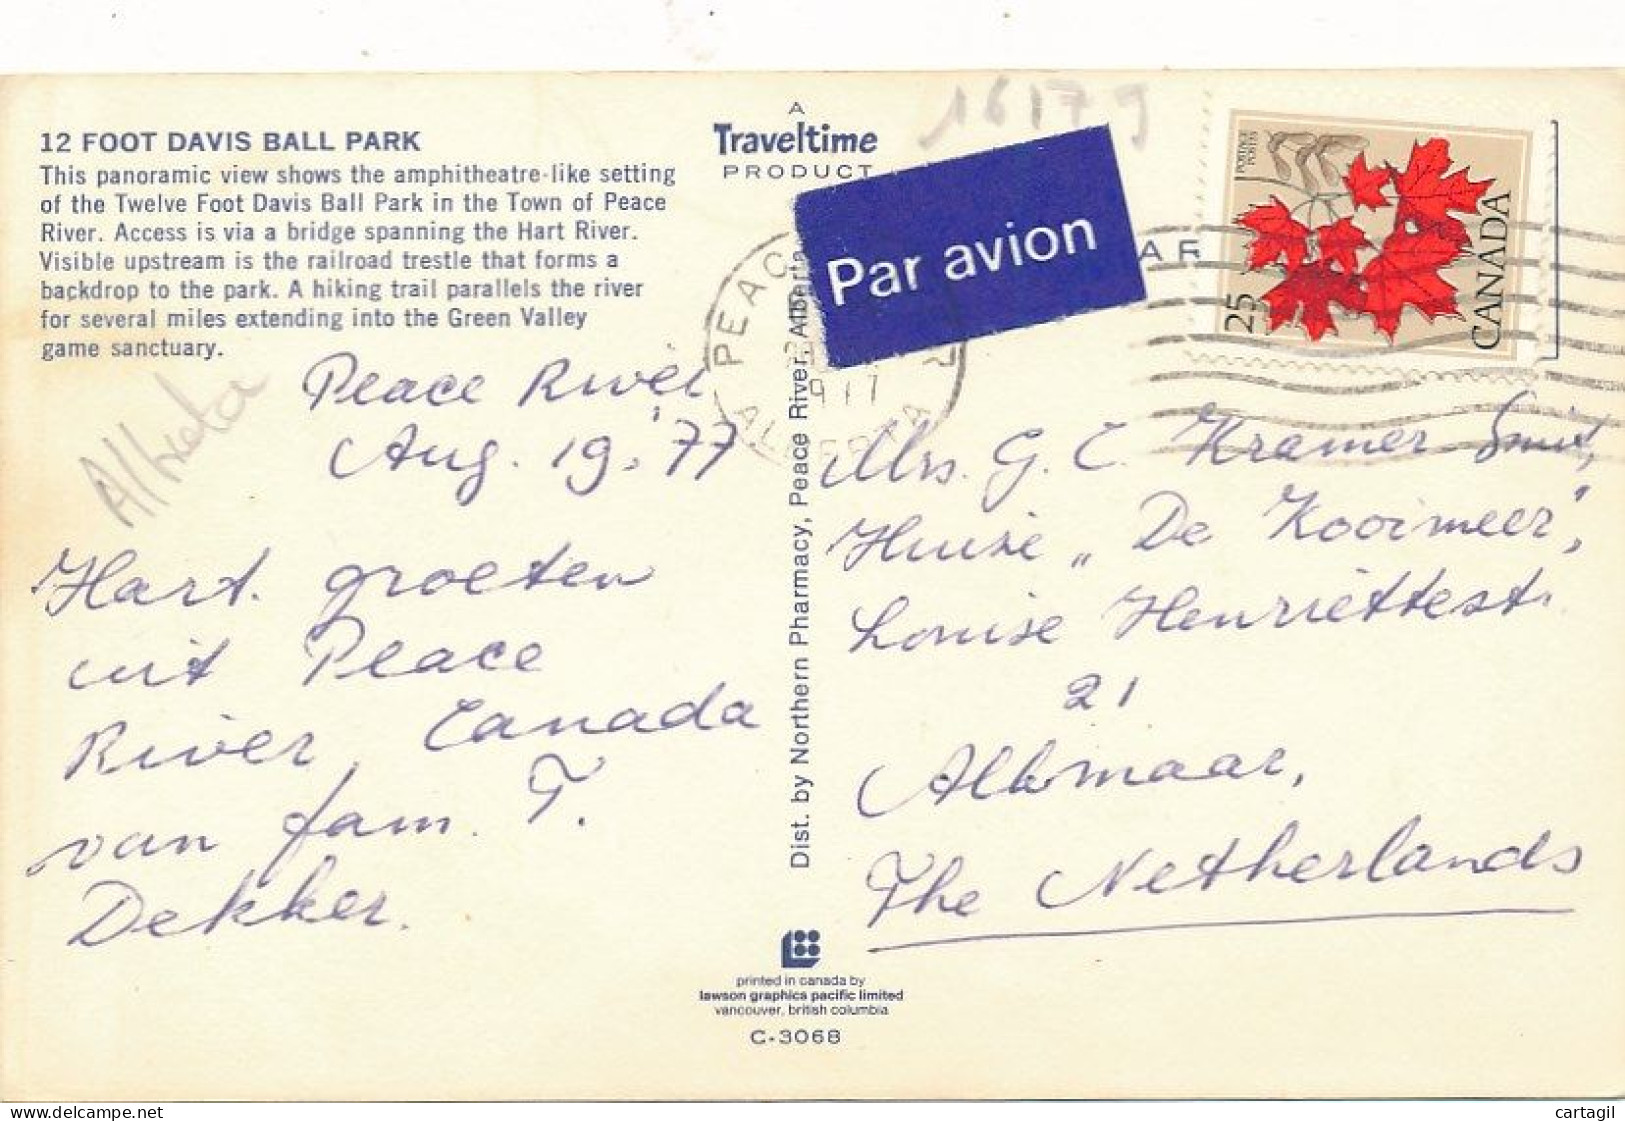 16179
12 FOOT DAVIS BALL PARK
This panoramic view shows the amphitheatre-like setting
of the Twelve Foot Davis Ball Park in the Town of Peace
River. Access is via a bridge spanning the Hart River.
Visible upstream is the railroad trestle that forms a
backdrop to the park. A hiking trail parallels the river
for several miles extending into the Green Valley
game sanctuary.
Peace River
Aug. 19. '77
Hart. groeten
uit Peace
River, Canada
van fam. T.
Dekker.
A
Traveltime
PRODUCT
Par avion
PEAC
ALBERTA
Dist. by Northern Pharmacy, Peace River, Alberta
POSTAGE
POSTES
25
CANADA
Mrs. G. C. Kramer Smit,
Huize „De Kooimeer",
Louise Henriettestr.
21
Alkmaar,
The Netherlands
printed in canada by
lawson graphics pacific limited
vancouver, british columbia
C-3068
www.delcampe.net
cartagil